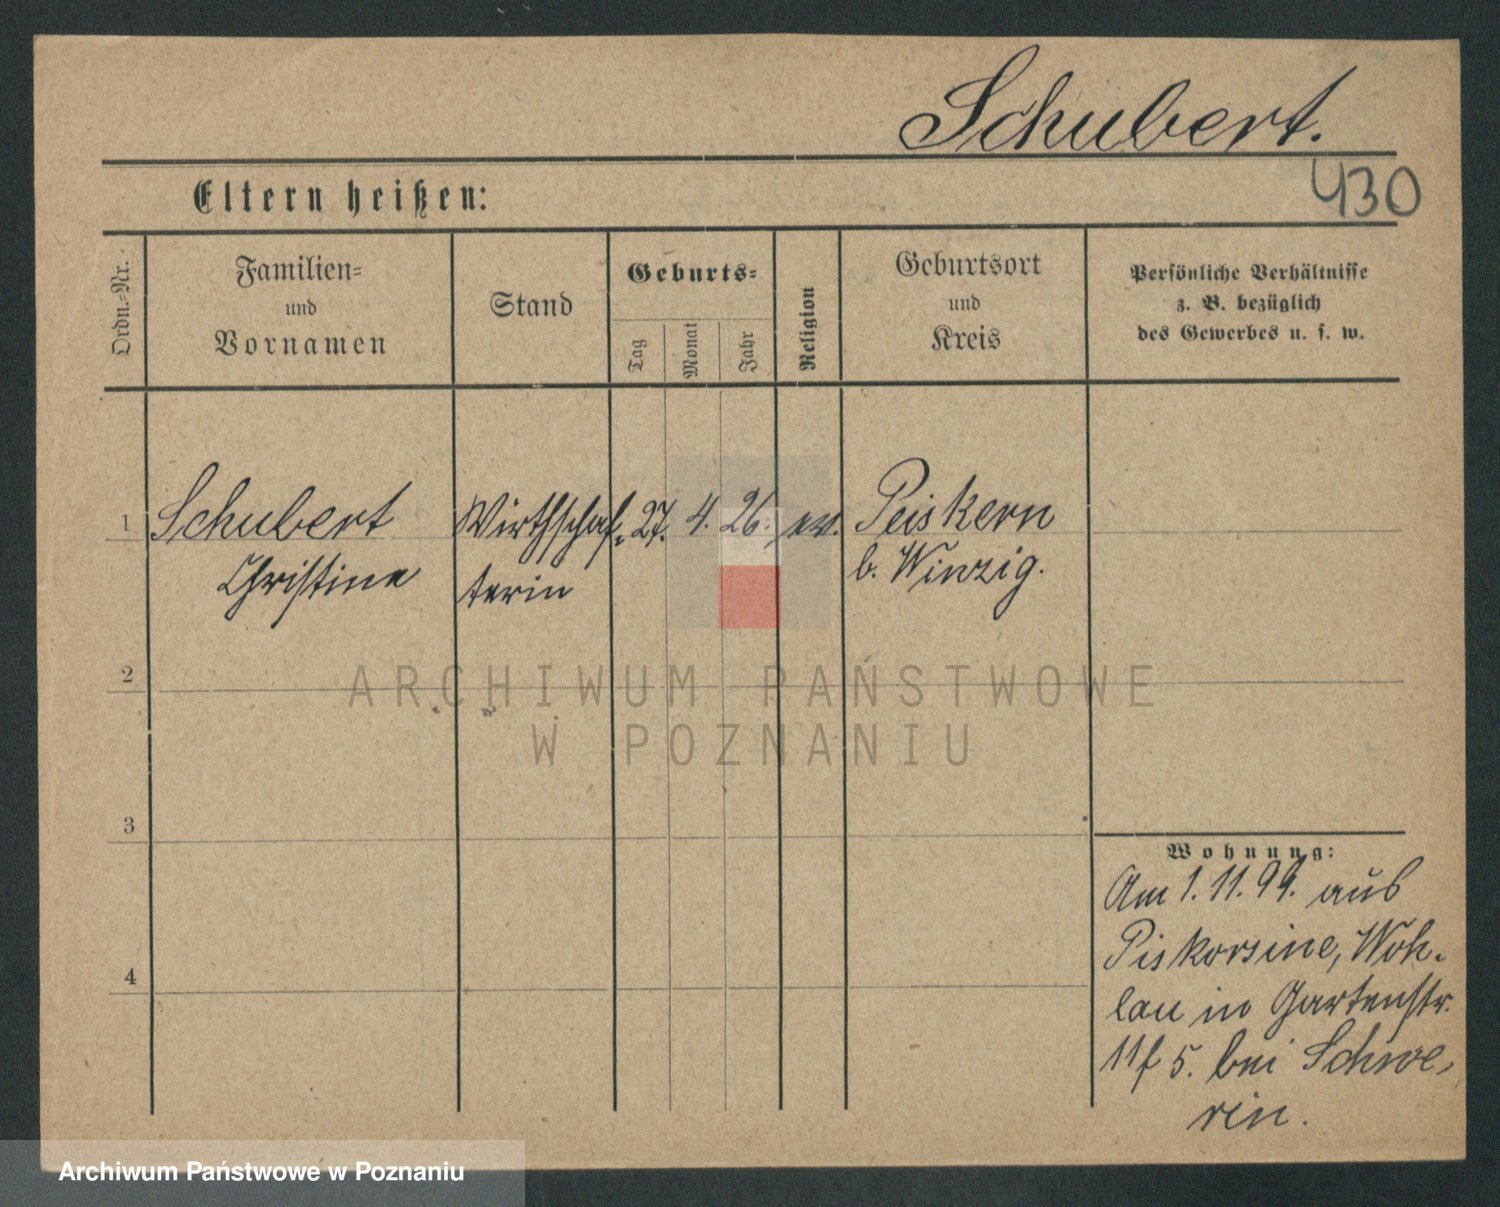 Schubert.
430
Eltern heißen:
Ordn.-Nr.
Familien-
und
Vornamen
Stand
Geburts-
Tag
Monat
Jahr
Religion
Geburtsort
und
Kreis
Persönliche Verhältnisse
z. B. bezüglich
des Gewerbes u. s. w.
1 Schubert Wirthschaf- 27. 4. 26. ev. Peiskern
Christine terin b. Winzig.
2
ARCHIWUM PAŃSTWOWE
W POZNANIU
3
Wohnung:
Am 1.11.99. aus
Piskorsine, Woh-
4
lau in Gartenstr.
11f 5. bei Schwe-
rin.
Archiwum Państwowe w Poznaniu